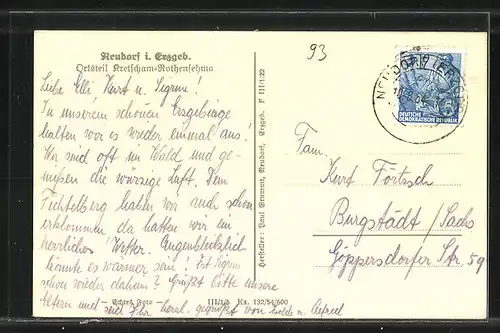 Neudorf i. Erzgeb.
Ortsteil Kretscham-Rothensehma
Liebe Elli Kurt u. Sigrun!
In unserem schönen Erzgebirge
halten wir es wieder einmal aus!
Wir sind oft im Wald und ge-
nießen die würzige Luft. Den
Fichtelberg haben wir auch schon
erklommen da hatten wir ein
herrliches Wetter. Augenblicklich
könnte es wärmer sein! Ist Sigrun
schon wieder daheim? Grüßt bitte unsere
Eltern und seid Ihr herzl. gegrüßt von und Alfred
Echte Foto III/1/5 Ka. 132/54/500
Hersteller: Paul Grummt, Neudorf, Erzgeb. F III/1/22
93
NEUDORF (ERZGEB
DEUTSCHE
DEMOKRATISCHE REPUBLIK
Fam.
Kurt Förtzsch
Burgstädt/Sachs
Göppersdorfer Str. 59